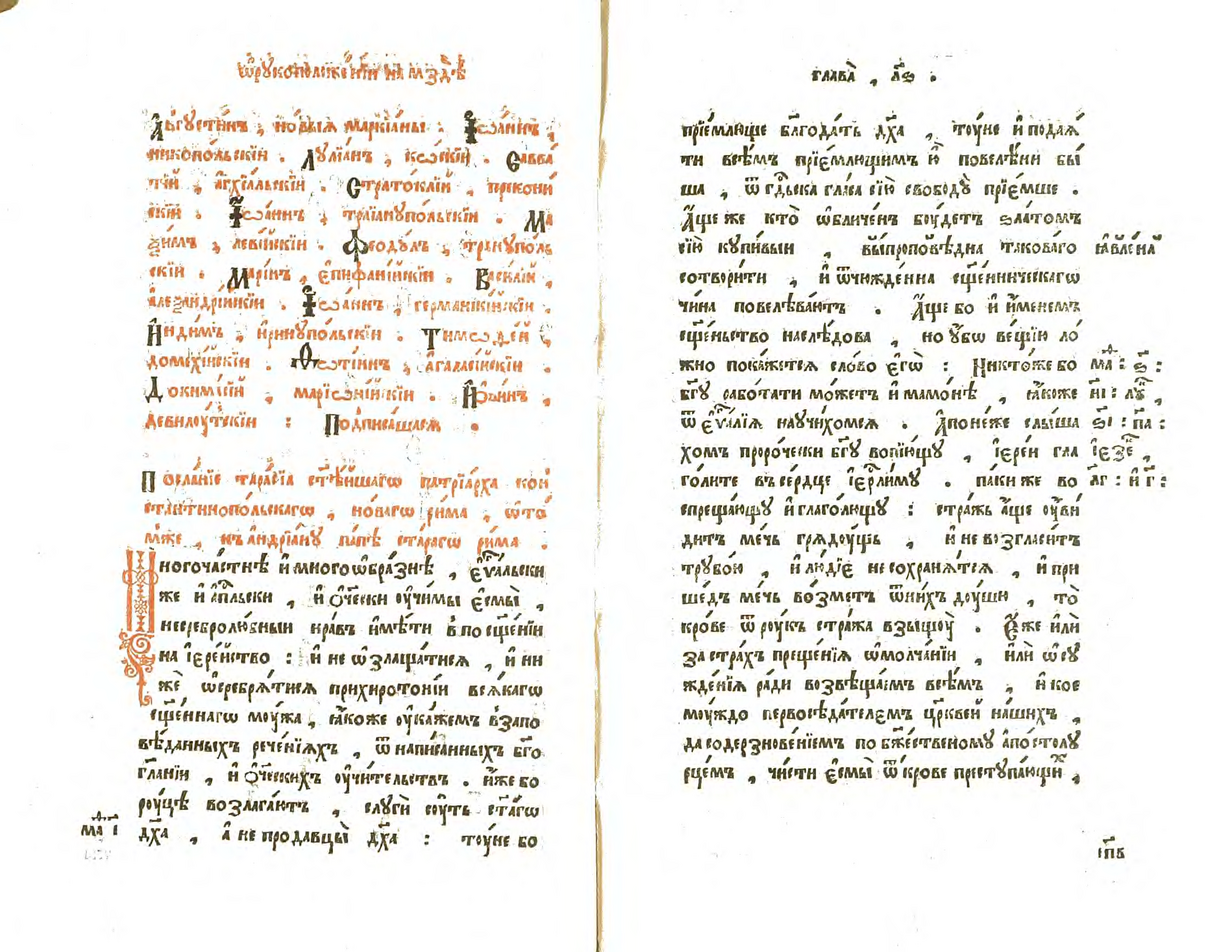 ѡ҆рꙋкоположе́нїи на мздѣ̀
А҆ѵгꙋсти́нъ , но́выѧ маркїа́ны . І҆ѡа́ннъ ,
никопо́льскїи . Лꙋлїа́нъ , кѡ́скїи . Савва́
тїи , а҆гхїа́льскїи . Стратокли́и , преконн
скїи . І҆ѡа́ннъ , траїанꙋпо́льскїи . Ма
ѯи́мъ , леві́йскїи . Ѳеодꙋ́лъ , транꙋпо́ль
скїи . Мари́нъ , є҆пифані́йскїи . Васи́лїи ,
а҆леѯандрі́йскїи . І҆ѡа́ннъ , германикі́йскїи .
И҆ндимъ , и҆ринꙋпо́льскїи . Тимоѡде́й ,
домехі́йскїи . Фѡти́нъ , а҆галасі́йскїи .
Докими́сїй , марїѡні́йскїи . И҆ѻи́нъ ,
девилоу́тскїи : Подписа́шасѧ .
Посла́нїе тара́сїа ст҃ѣ́йшагѡ патрїа́рха кон
стантинопо́льскагѡ , но́вагѡ ри́ма , ѡ҆то́
мже , къ андрїа́нꙋ па́пѣ ста́рагѡ ри́ма .
Многоча́стнѣ и҆ многоѡбра́знѣ , є҆ѵⷢ҇а́льски
же и҆ а҆пⷭ҇льски , и҆ ѻ҆́ч҃ески ᲂу҆чимы є҆смы̀ ,
несребролю́бныи нра́въ и҆мѣ́ти в̾ посщ҃е́нїи
на і҆ере́йство : и҆ не ѡ҆злаща́тисѧ , и҆ ни
жѐ ѡ҆серебрѧ́тисѧ прихирото́нїи всѧ́кагѡ
сщ҃е́ннагѡ моу́жа , ꙗ҆́коже ᲂу҆ка́жемъ в̾запо
вѣ́данныхъ рече́нїѧхъ , ѿ написа́нныхъ бг҃о
гл҃а́нїи , и҆ ѻ҆́ч҃ескихъ ᲂу҆чи́тельствъ . и҆́же бо
роу́цѣ возлага́ютъ , слꙋгѝ соу́ть ст҃а́гѡ
маⷴ І҃
дх҃а , а҆ не продавцы̀ дх҃а : тоу́не бо
глава̀ , л҃ѕ .
прїе́млюще блг҃ода́ть дх҃а , тоу́не и҆ подаѧ́
ти всѣ́мъ прїе́млющимъ ю҆̀ повелѣ́ни бы́
ша , ѿ гдⷭ҇ьска гла́са сїю̀ свобо́дꙋ прїе́мше .
А҆́ще же кто̀ ѡ҆бличе́нъ бꙋ́детъ ѕла́томъ
сїю̀ кꙋпи́выи , вы̾проповѣ́дна таковаго
ꙗ҆вле́на
сотвори́ти , и҆ ѿчижде́нна сщ҃е́нническагѡ
чи́на повелѣва́ютъ . А҆́ще бо и҆ и҆́менемъ
сщ҃е́ньство наслѣ́дова , но ᲂу҆́бѡ ве́щїю ло́
жно пока́жетсѧ сло́во є҆гѡ̀ : Никто́же бо
маⷴ : ѕ҃ :
бг҃ꙋ рабо́тати мо́жетъ и҆ мамо́нѣ , ꙗ҆́коже
н҃і : лꙋⷦ ,
ѿ є҆ѵⷢ҇а́лїѧ наꙋчи́хомсѧ . А҆поне́же слы́ша
ѕ҃і : п҃а :
хомъ проро́чески бг҃ꙋ вопїю́щꙋ , і҆ере́и гла
і҆езе́ⷦ ,
го́лите въ се́рдце і҆ерⷭ҇ли́мꙋ . паки же во
л҃г : и҆ г҃ :
спреща́ющꙋ и҆ глаго́лющꙋ : стра́жь а҆́ще ᲂу҆́ви
дитъ ме́чь грѧдоу́щь , и҆ не возгласи́тъ
трꙋбо́ю , и҆ лю́дїе не сохранѧ́тсѧ , и҆ при
ше́дъ ме́чь во́зметъ ѿни́хъ доу́шю , то̀
кро́ве ѿ роу́къ стра́жа взыщꙋ̀ . Е҆́же и҆лѝ
за стра́хъ преще́нїѧ ѡ҆молча́нїи , и҆лѝ ѡ҆сꙋ
жде́нїѧ ра́ди возвѣща́емъ всѣ́мъ , и҆ кое
моу́ждо первосѣда́телемъ цр҃кве́й на́шихъ ,
да содерзнове́нїемъ по бж҃е́ственомꙋ а҆по́столꙋ
рце́мъ , чи́сти є҆смы̀ ѿ кро́ве престꙋпа́ющиⷯ ,
сп҃в